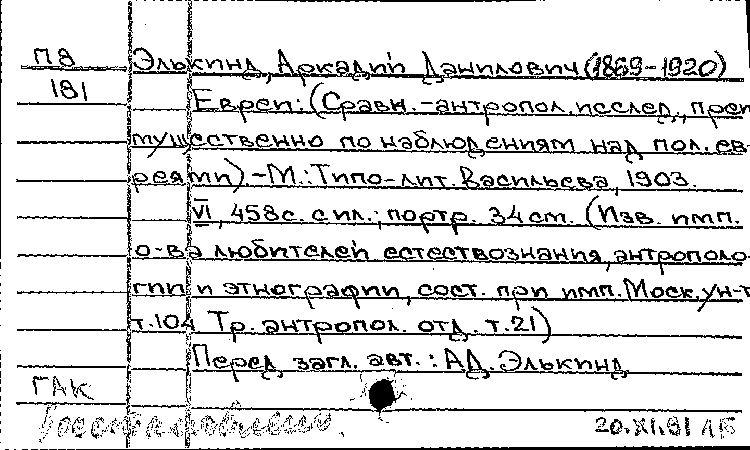 П8 Элькинд, Аркадий Данилович (1869-1920)
181 Евреи: (Сравн.-антропол. исслед., преи
мущественно по наблюдениям над пол. ев-
реями).-М.: Типо-лит. Васильева, 1903.
VI, 458с. с ил.; портр. 34см. (Изв. имп.
о-ва любителей естествознания, антрополо-
гии и этнографии, сост. при имп. Моск. ун-т
т.104 Тр. антропол. отд. т.21)
Перед загл. авт.: А.Д. Элькинд
ГАК
Восстановлено.
20.XI.91 АБ